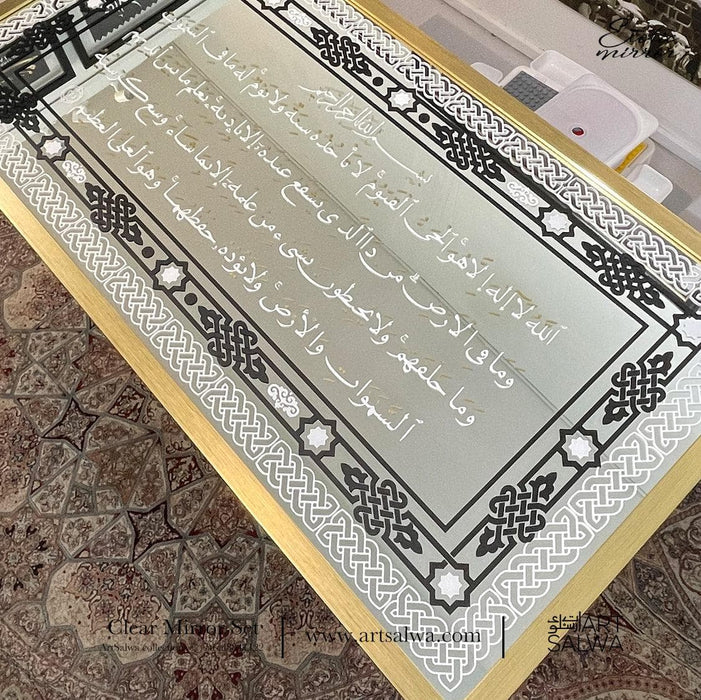 بسم الله الرحمن الرحيم
اللهُ لا إله إلا هو الحيُّ القيومُ لا تأخذه سنةٌ ولا نومٌ له ما في السموات
وما في الأرض من ذا الذي يشفع عنده إلا بإذنه يعلم ما بين أيديهم
وما خلفهم ولا يحيطون بشيء من علمه إلا بما شاء وسع كرسيه
السَّمَوَاتِ وَالأَرْضَ ولا يؤده حفظهما وهو العلي العظيم
mirror
Clear Mirror Set
ArtSalwa collection
www.artsalwa.com
ART
SALWA